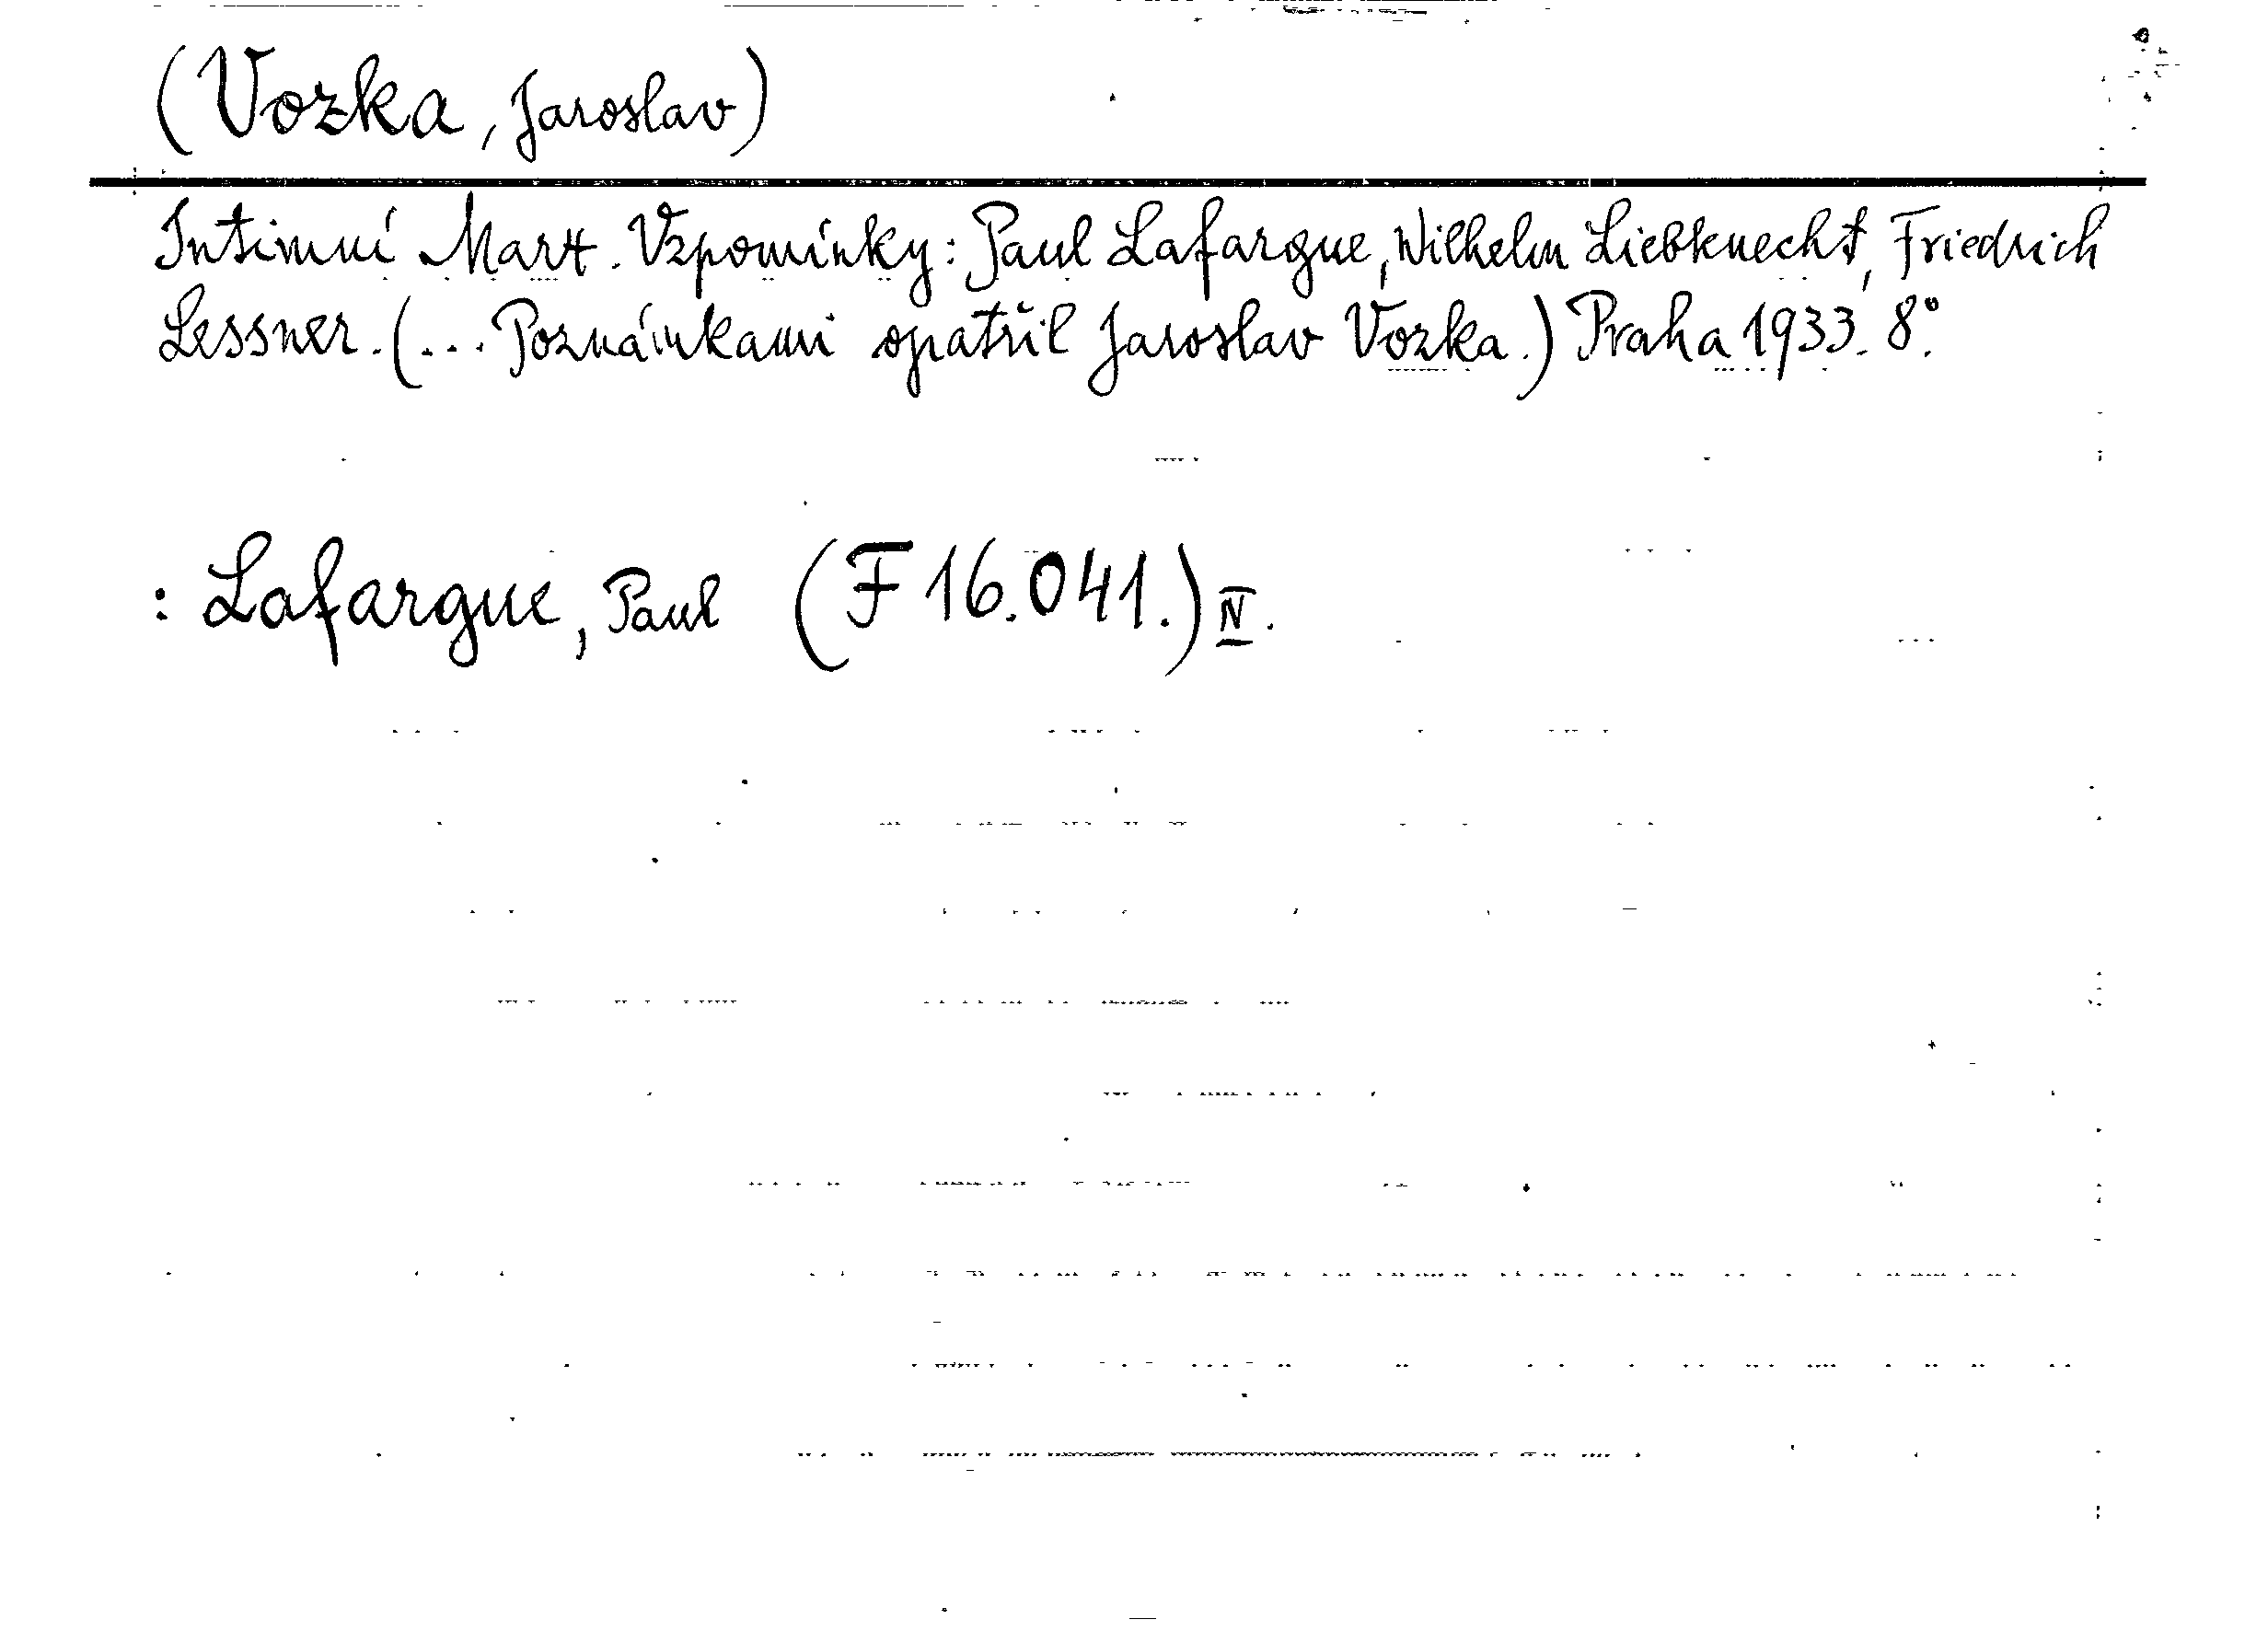 (Vozka, Jaroslav)
Intimní Marx. Vzpomínky: Paul Lafargue, Wilhelm Liebknecht, Friedrich
Lessner. (... Poznámkami opatřil Jaroslav Vozka.) Praha 1933. 8°.
: Lafargue, Paul (F 16.041.) IV.